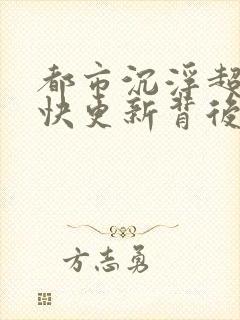 都市沉浮超
快更新背後
方志勇